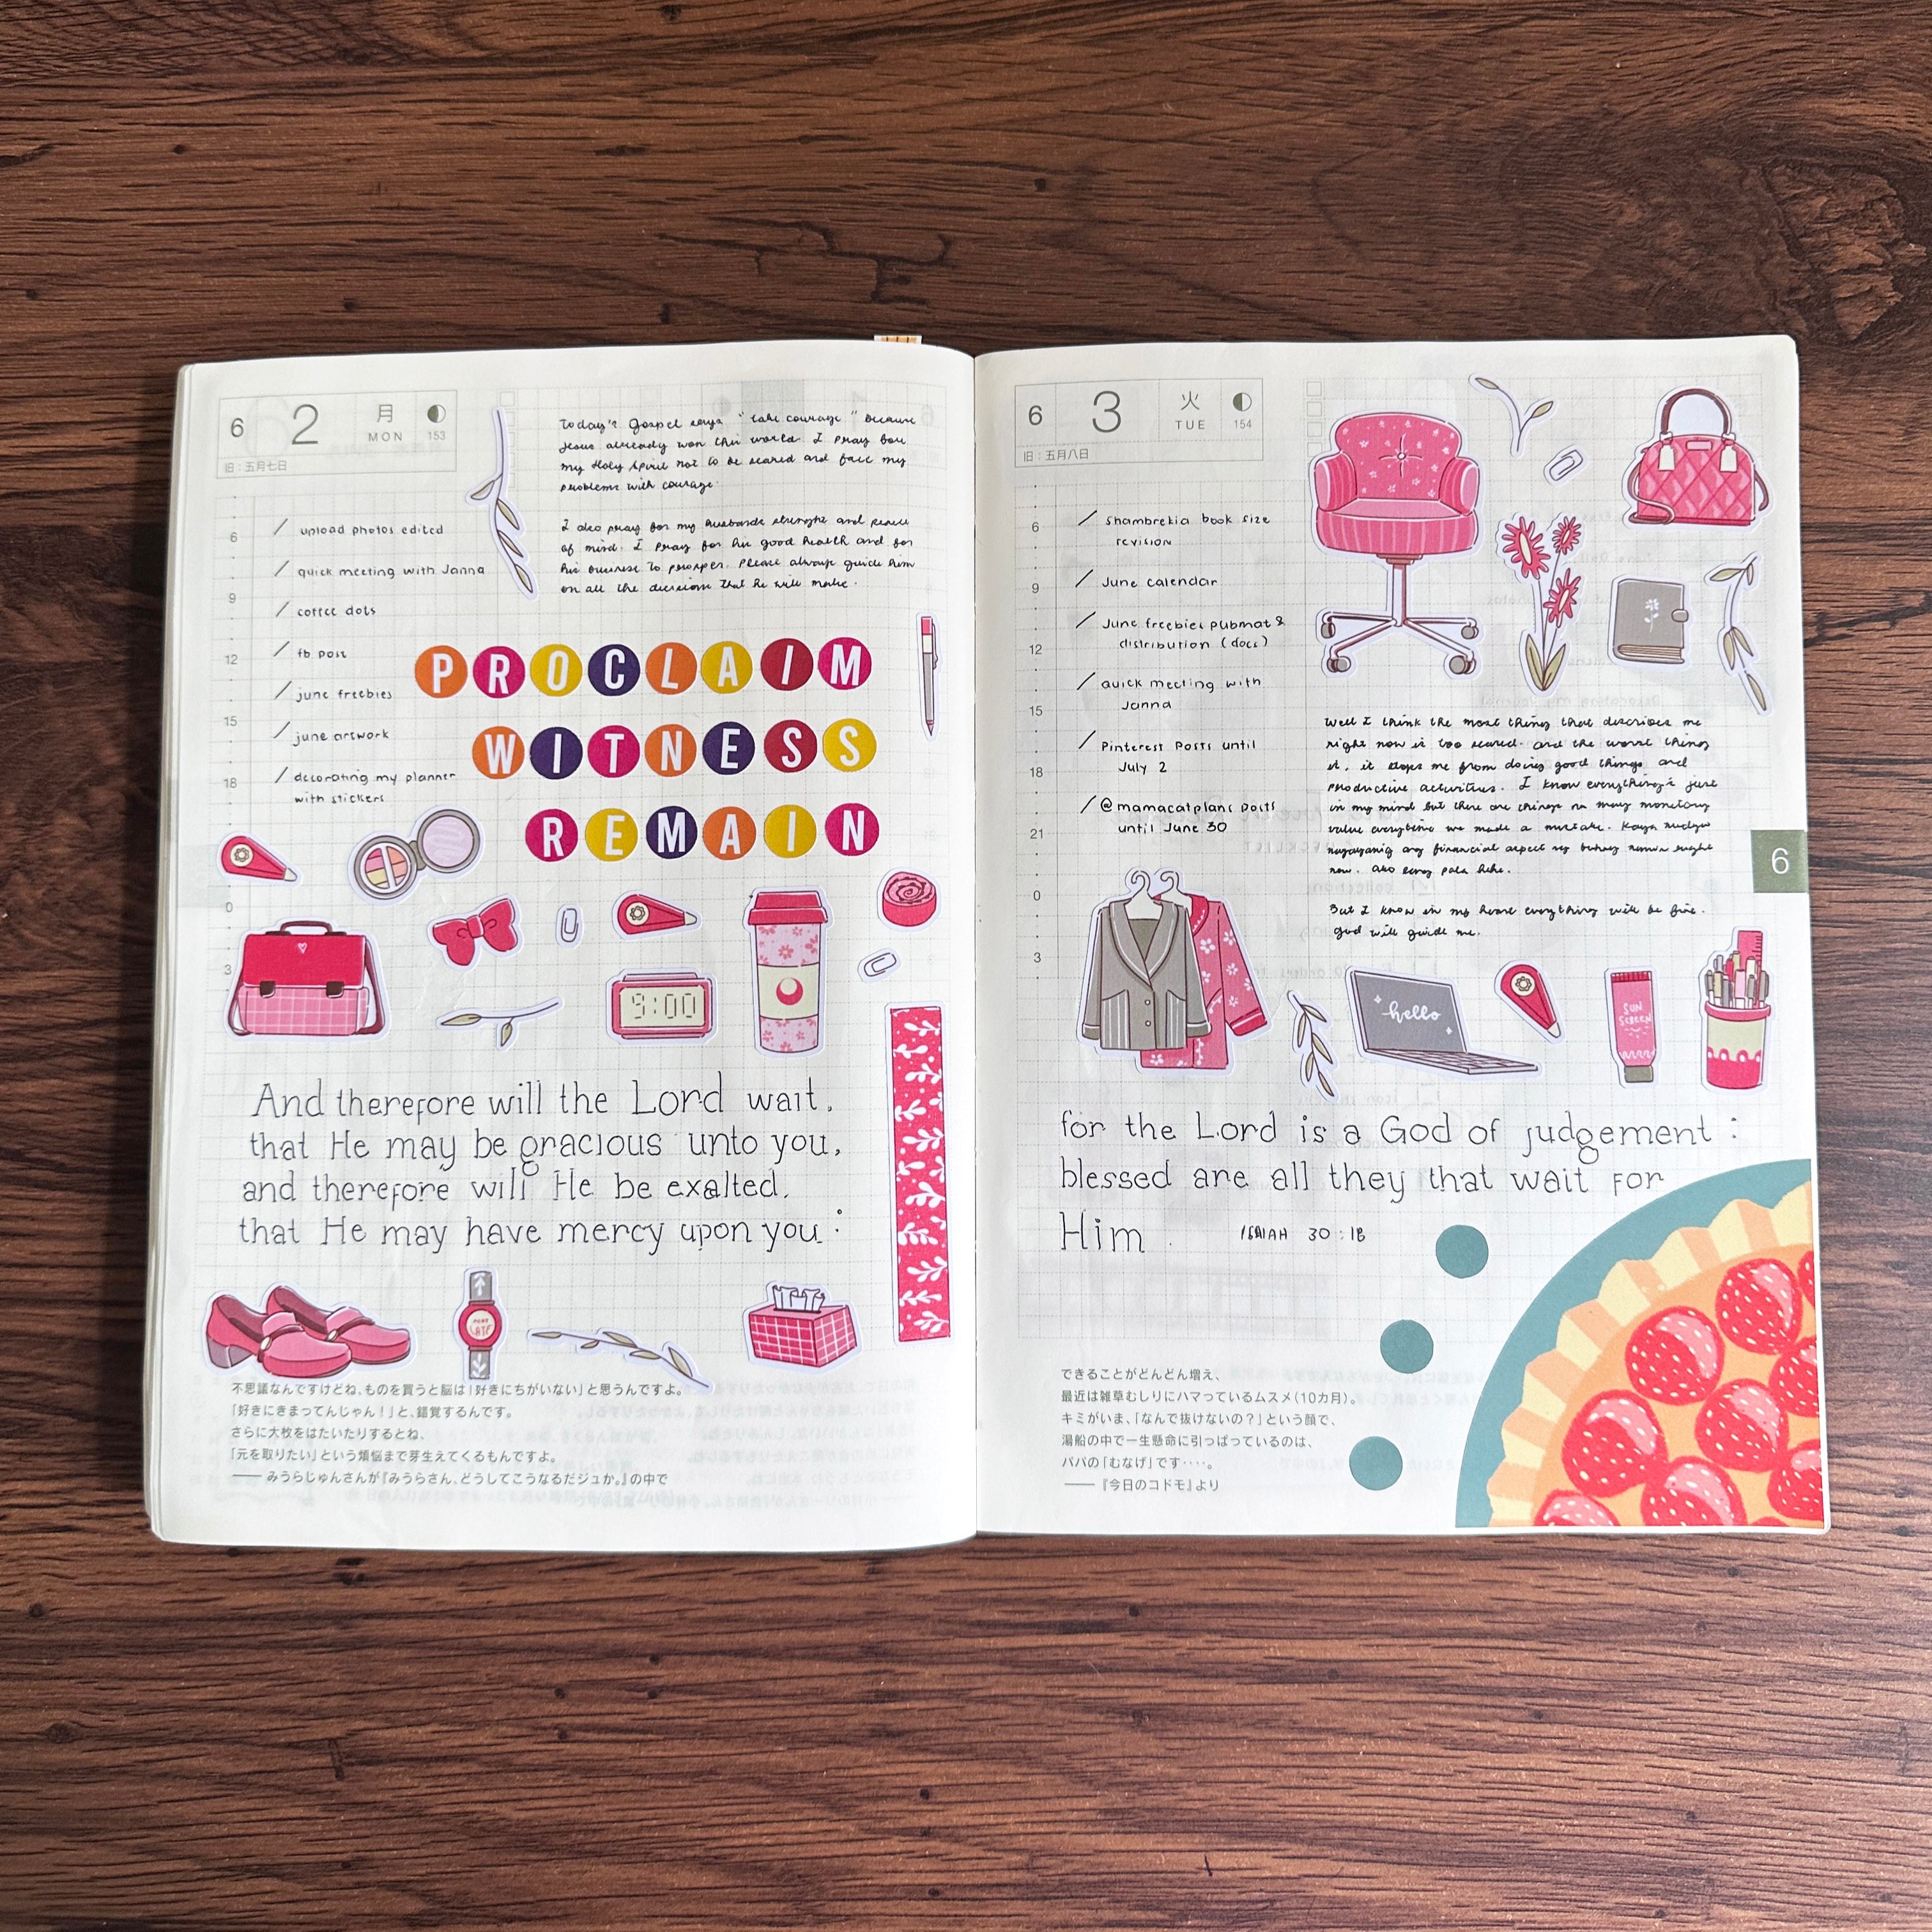 6 2 月 MON 153
旧:五月七日
Today's Gospel says "take courage" because
Jesus already won this world. I pray for
my Holy Spirit not to be scared and face my
problems with courage.
I also pray for my husbands strenght and peace
of mind. I pray for his good health and for
his business to prosper. Please always guide him
on all the decisions that he will make.
6
9
12
15
18
0
3
/ upload photos edited
/ quick meeting with Janna
/ coffee dots
/ fb post
/ june freebies
/ june artwork
/ decorating my planner
with stickers
PROCLAIM
WITNESS
REMAIN
9:00
And therefore will the Lord wait,
that He may be gracious unto you,
and therefore will He be exalted,
that He may have mercy upon you:
LATE
不思議なんですけどね、ものを買うと脳は「好きにちがいない」と思うんですよ。
「好きにきまってんじゃん!」と、錯覚するんです。
さらに大枚をはたいたりするとね、
「元を取りたい」という煩悩まで芽生えてくるもんですよ。
── みうらじゅんさんが『みうらさん、どうしてこうなるだジュか。』の中で
6 3 火 TUE 154
旧:五月八日
6
9
12
15
18
21
0
3
/ shambrekia book size
revision
/ June calendar
/ June freebies pubmat &
distribution (docs)
/ quick meeting with
Janna
/ Pinterest Posts until
July 2
/ @mamacatplans posts
until June 30
Well I think the most thing that describes me
right now is too scared. and the worst thing
is, it stops me from doing good things and
productive activities. I know everything's just
in my mind but there are things na may monetary
value everytime we made a mistake. Kaya
ang financial aspect ng buhay namin right
now. Also
But I know in my heart everything will be fine.
God will guide me.
6
hello
SUN
SCREEN
for the Lord is a God of judgement :
blessed are all they that wait for
Him.
ISAIAH 30:18
できることがどんどん増え、
最近は雑草むしりにハマっているムスメ(10カ月)。
キミがいま、「なんで抜けないの?」という顔で、
湯船の中で一生懸命に引っぱっているのは、
パパの「むなげ」です‥‥。
── 『今日のコドモ』より